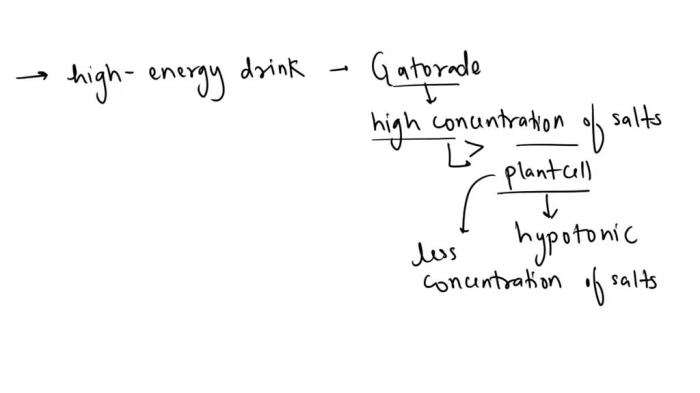 → high-energy drink - Gatorade
↓
high concentration of salts
↳ >
plant cell
↓
hypotonic
less
concentration of salts